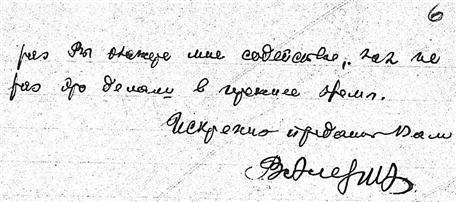 6
раз Вы окажете мне содействие, как не
раз это делали в прежнее время.
Искренно преданный Вам